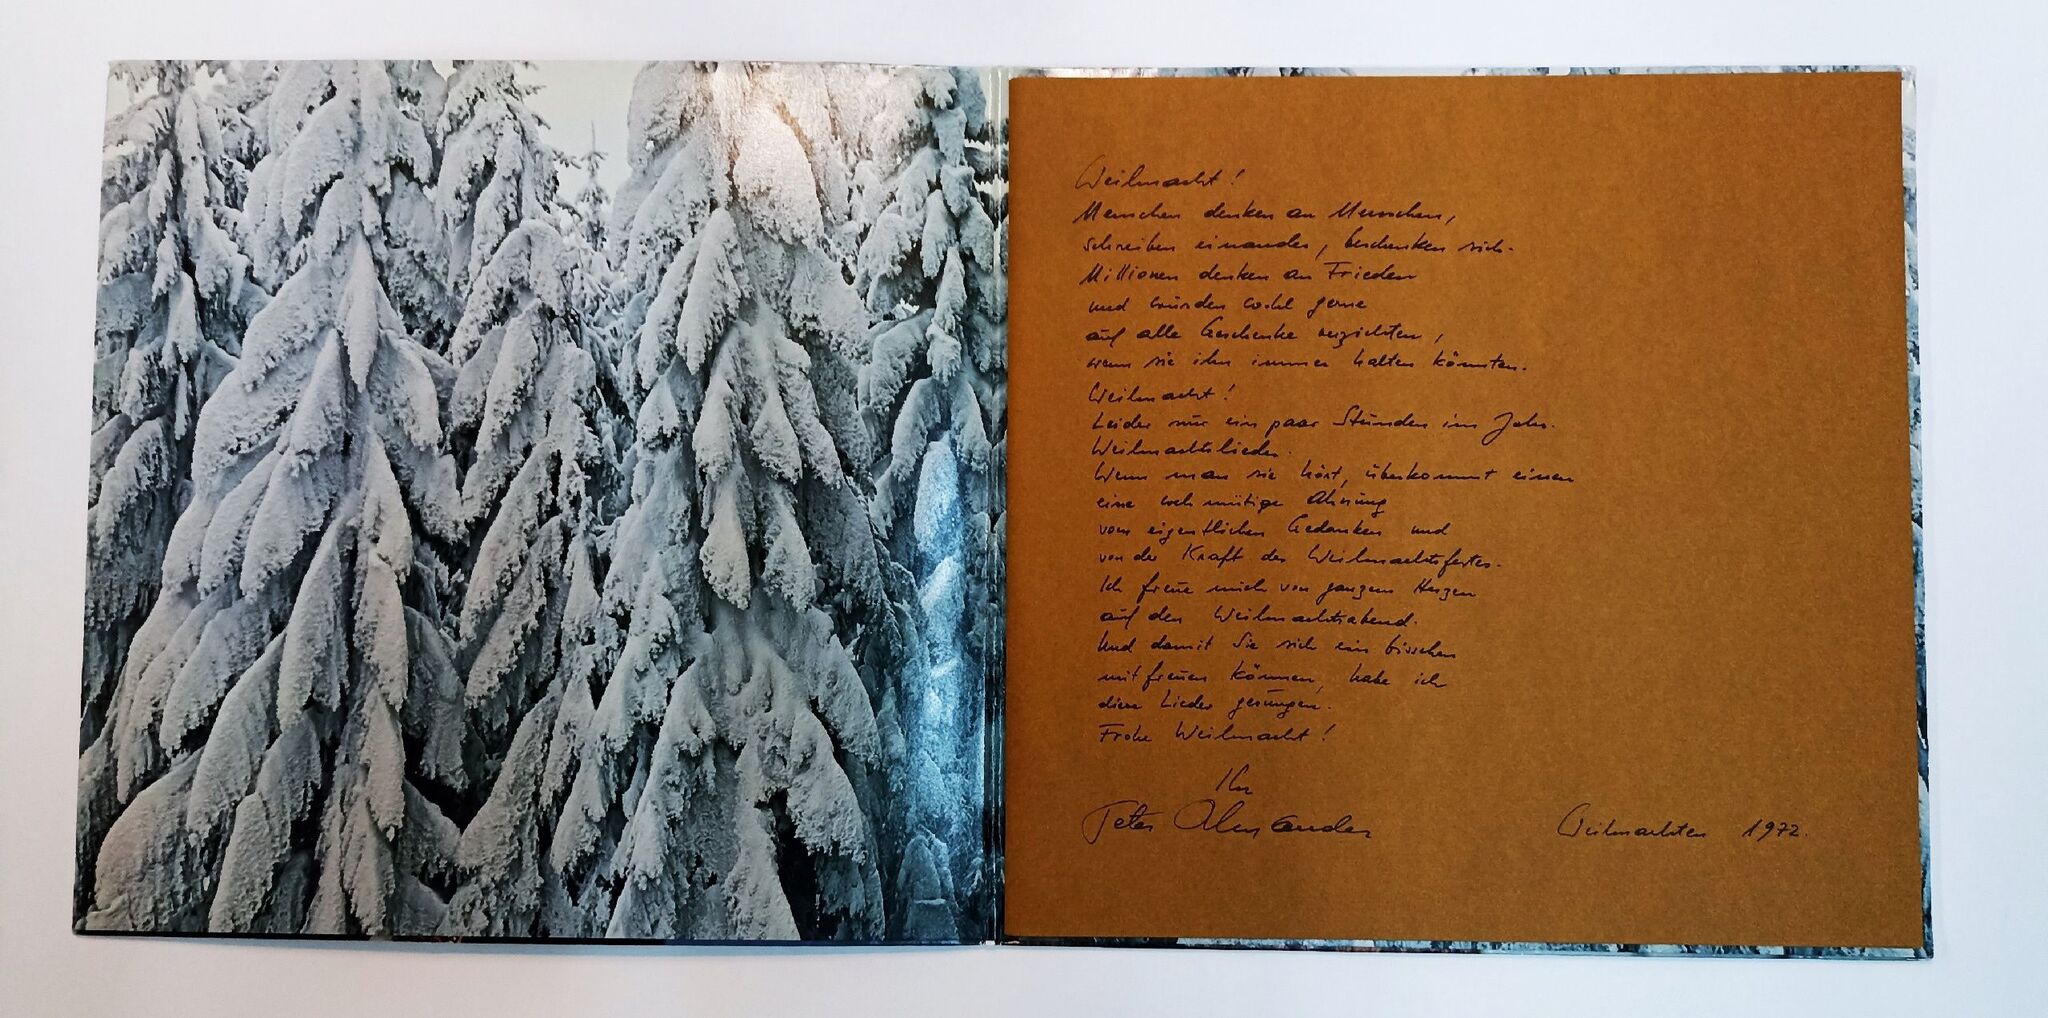 Weihnacht!
Menschen denken an Menschen,
schreiben einander, beschenken sich.
Millionen denken an Frieden
und würden wohl gerne
auf alle Geschenke verzichten,
wenn sie ihn immer halten könnten.
Weihnacht!
Leider nur ein paar Stunden im Jahr.
Weihnachtslieder.
Wenn man sie hört, überkommt einen
eine wehmütige Ahnung
vom eigentlichen Gedanken und
von der Kraft des Weihnachtsfestes.
Ich freue mich von ganzem Herzen
auf den Weihnachtsabend.
Und damit Sie sich ein bisschen
mitfreuen können, habe ich
diese Lieder gesungen.
Frohe Weihnacht!
Ihr
Peter Alexander
Weihnachten 1972.